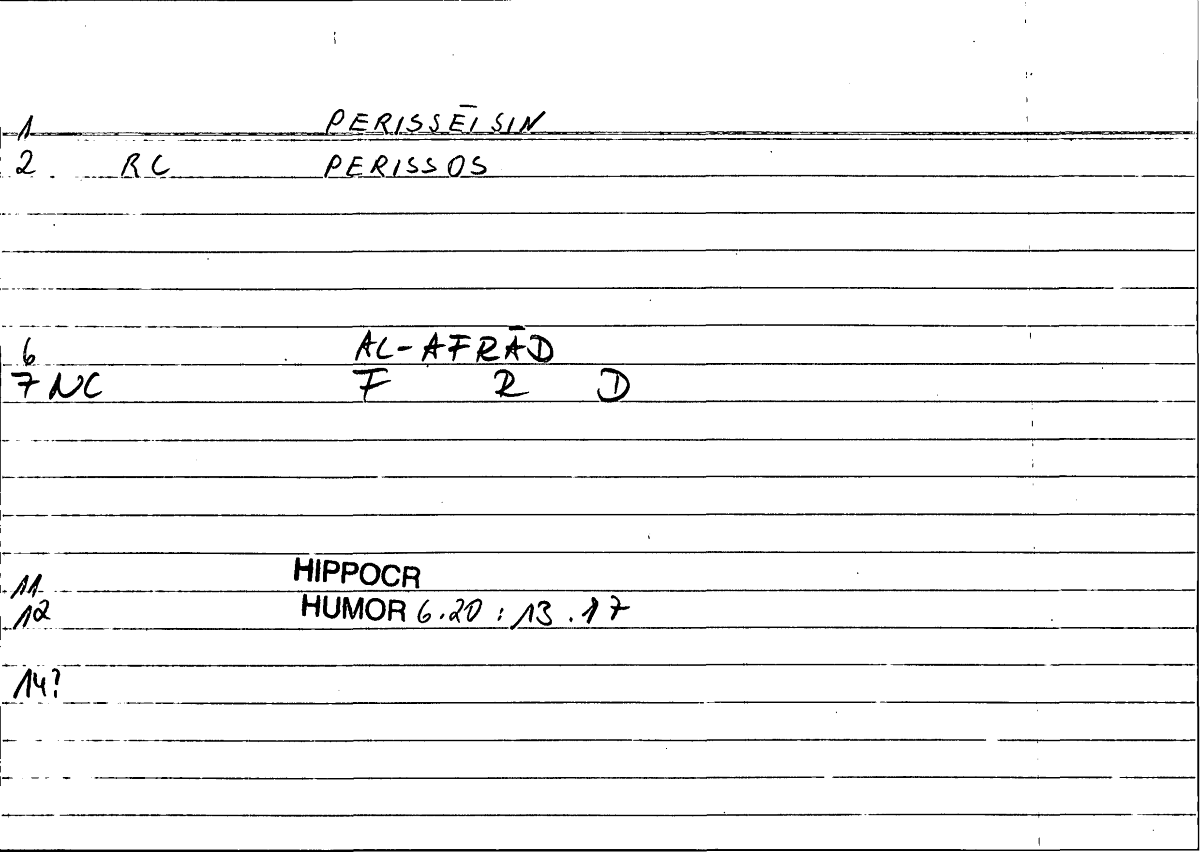 1 PERISSĒISIN
2 RC PERISSOS
6 AL-AFRĀD
7 NC F R D
11 HIPPOCR
12 HUMOR 6.20 : 13.17
14?